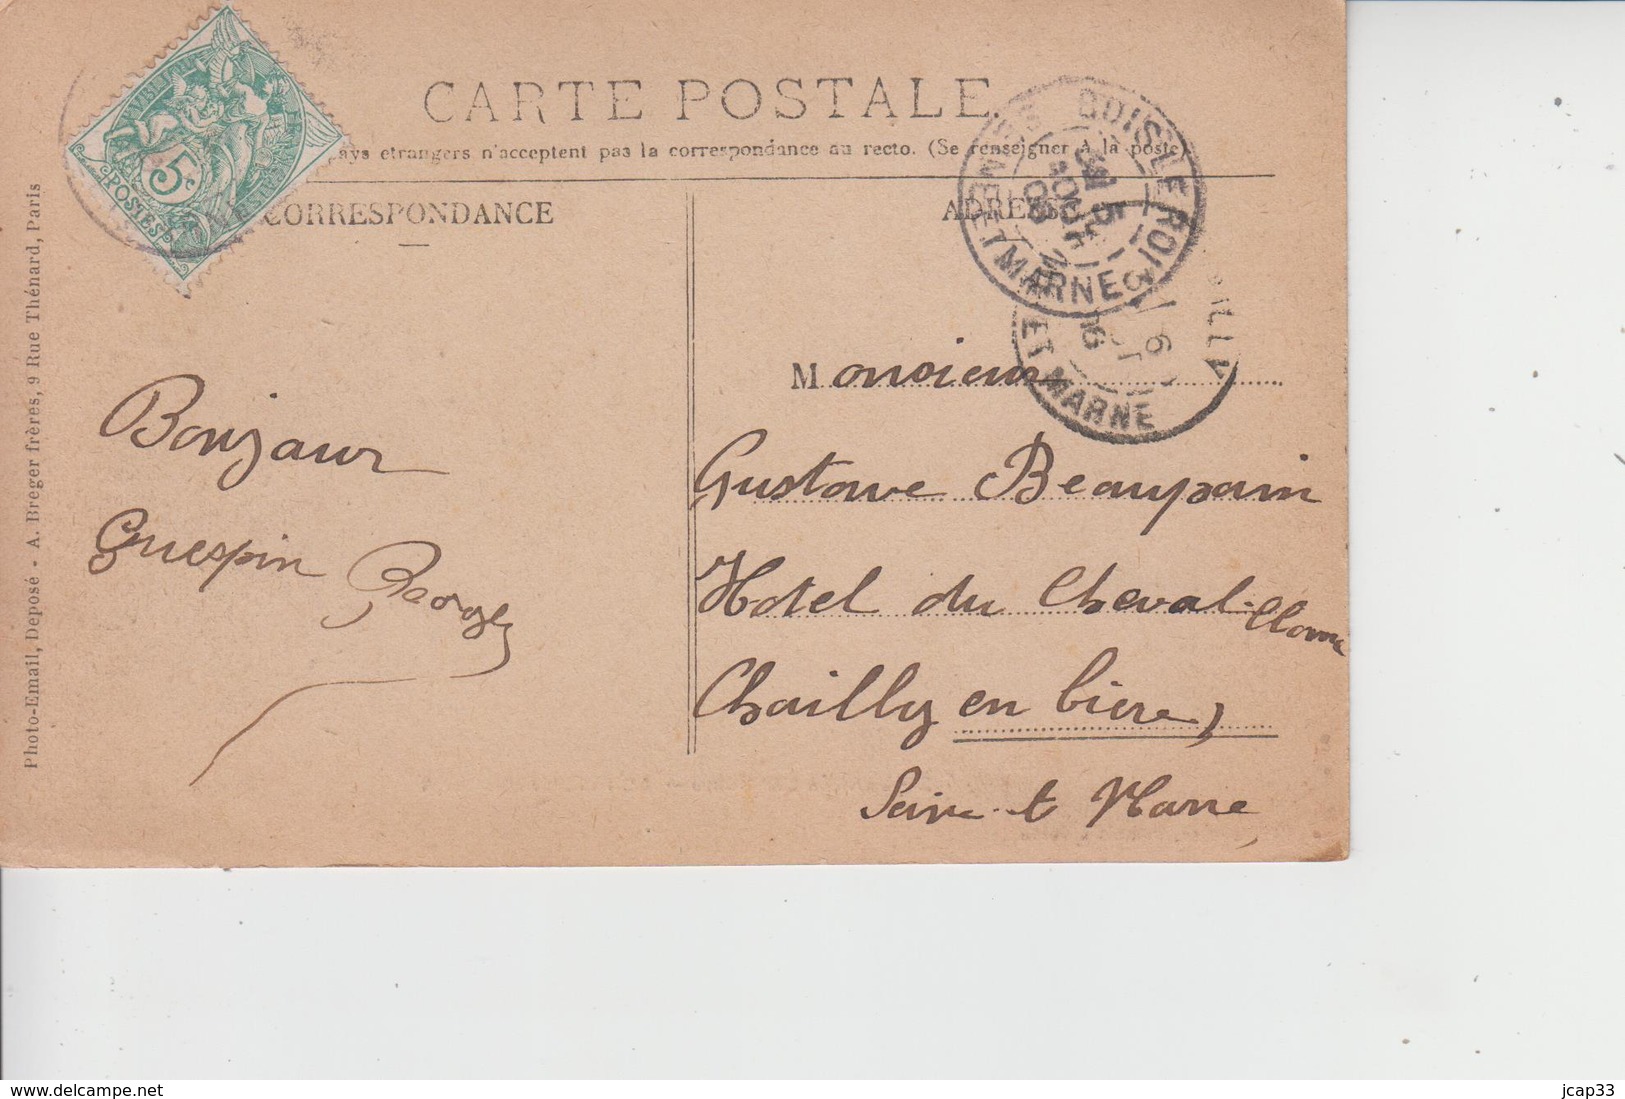 CARTE POSTALE
pays etrangers n'acceptent pas la correspondance au recto. (Se renseigner à la poste)
CORRESPONDANCE
ADRESSE
5c
POSTES
BOIS LE ROI
SEINE ET MARNE
5
AOUT
06
ET MARNE
6
06
Photo-Email, Deposé - A. Breger frères, 9 Rue Thénard, Paris
Bonjour
Guespin Georges
Monsieur
Gustave Beaupain
Hotel du Cheval-Blanc
Chailly en bière,
Seine et Marne
www.delcampe.net
jcap33